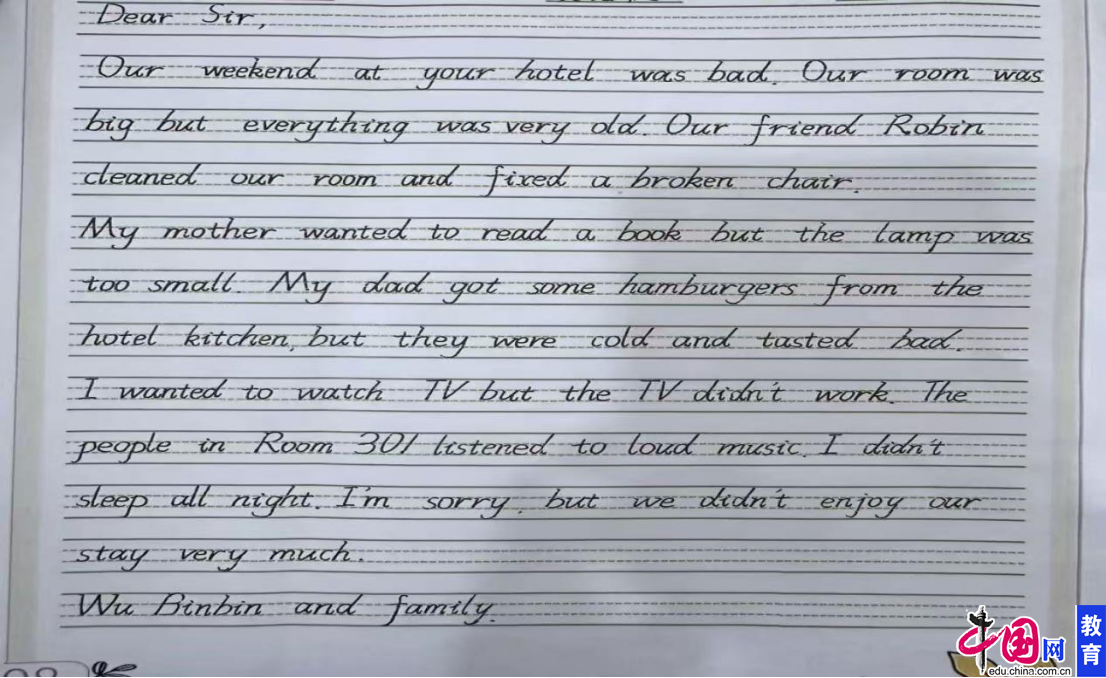 Dear Sir,
Our weekend at your hotel was bad. Our room was
big but everything was very old. Our friend Robin
cleaned our room and fixed a broken chair.
My mother wanted to read a book but the lamp was
too small. My dad got some hamburgers from the
hotel kitchen, but they were cold and tasted bad.
I wanted to watch TV but the TV didn't work. The
people in Room 301 listened to loud music. I didn't
sleep all night. I'm sorry, but we didn't enjoy our
stay very much.
Wu Binbin and family.
中国网
教育
edu.china.com.cn